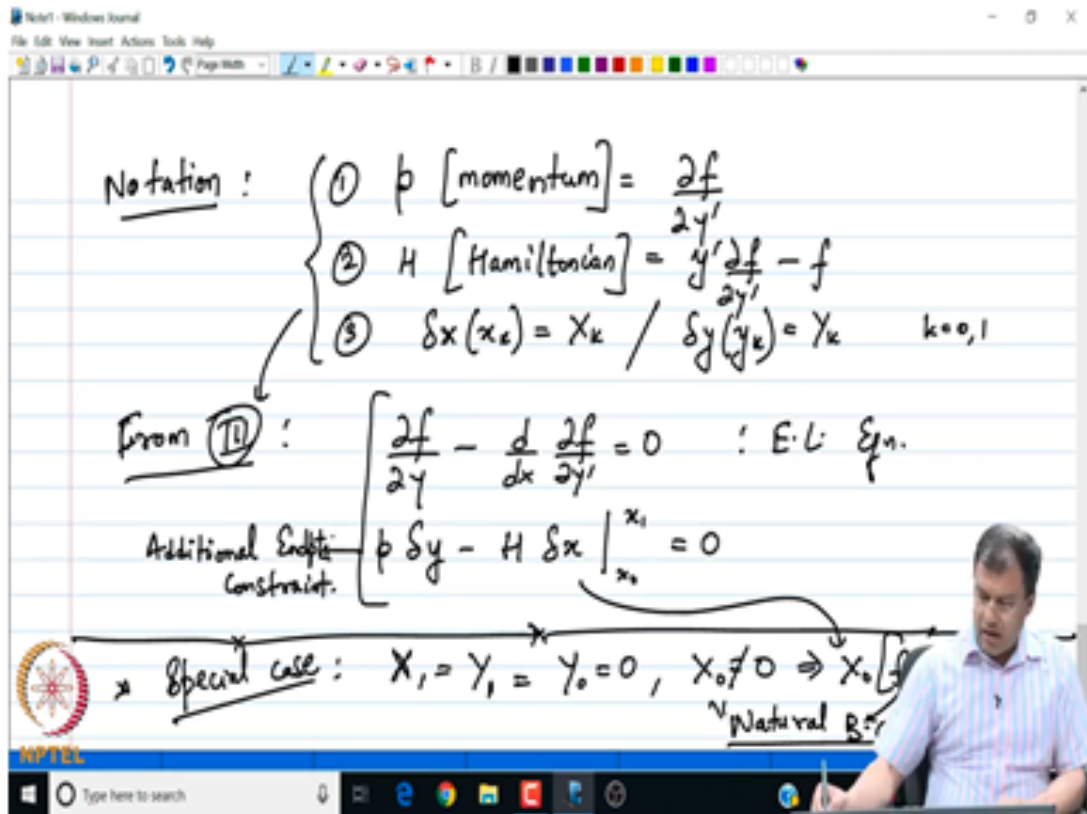 Note1 - Windows Journal
File Edit View Insert Actions Tools Help
Page Width
B I
Notation : ① p [momentum] = ∂f/∂y'
② H [Hamiltonian] = y' ∂f/∂y' - f
③ δx(x_k) = X_k / δy(y_k) = Y_k k=0,1
From II : ∂f/∂y - d/dx ∂f/∂y' = 0 : E.L. Eqn.
Additional Endpt. Constraint. p δy - H δx |_{x_0}^{x_1} = 0
* Special case : X_1 = Y_1 = Y_0 = 0, X_0 ≠ 0 ⇒ X_0 [
Natural B.
NPTEL
Type here to search